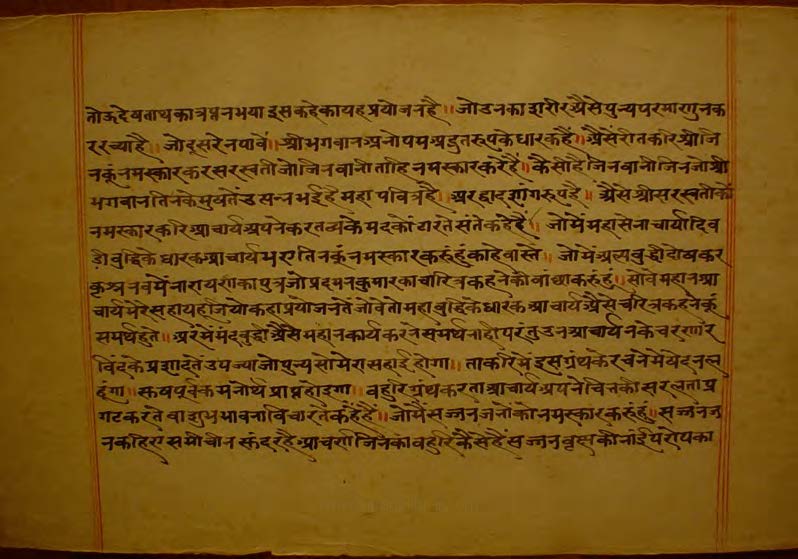 तोऊ देवताथका त्रप्तन भया इस कहे का यह प्रयोजन है ॥ जो उनका शरीर अैसे पुन्य परमाणुन क
र रच्या है ॥ जो दूसरे न पावे ॥ श्री भगवान अनोपम अद्भुत रूप के धारक है ॥ अैसे रीत करि श्री जि
नकूं नमस्कार कर सरस्वती जो जिनवानी ताहि नमस्कार करै है ॥ कैसी है जिनवानी जिन जो श्री
भगवान तिनके मुख तें उत्पन्न भई है महा पवित्र है ॥ अर द्वादशांग रूप है ॥ अैसे श्री सरस्वती कों
नमस्कार करि आचार्य अपने करतव्य के मद कों गारते संते कहे हैं ॥ जो में महासेनाचार्यादि व
डी बुद्धि के धारक आचार्य भए तिनकूं नमस्कार करुं हुं काहे वास्ते ॥ जो में अल्पबुद्धी दोष कर
कृश्न नवमें नारायण का पुत्र जो प्रदमनकुमार का चारित्र कहने की वांछा करुं हुं ॥ सो वे महान आ
चार्य मेरे सहाय हूजियो कहा प्रयोजन तें जो वे तो महा बुद्धि के धारक आचार्य अैसे चरित्र कहने कूं
समर्थ हुते ॥ अर में मंदबुद्धी अैसे महान कार्य करन समर्थ नाही परंतु उन आचार्यन के चरणार
विंद के प्रशाद तें उपज्या जो पुन्य सो मेरा सहाई होगा ॥ ता करि में इस ग्रंथ के रचने में खेद न ल
हूंगा ॥ सुष पूर्वक मनोर्थ प्राप्त होइगा ॥ बहुरि ग्रंथ करता आचार्य अपने चित्त की सरलता प्र
गट करते वा शुभ भावना विचारते कहै है ॥ जो मैं सज्जन जनां को नमस्कार करुं हुं ॥ सज्जन ज
न कहिए समीचीन सुंदर है आचर्ण जिनका बहुरि कैसे है सज्जन वृक्ष की नांई परोपका